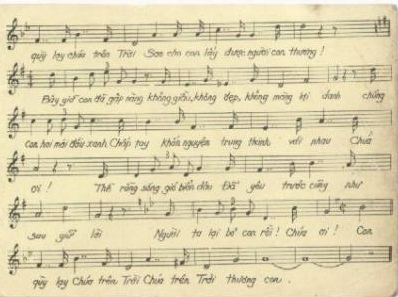 quỳ lạy chúa trên Trời Sao cho con lấy được người con thương!
Bây giờ con đã gặp nàng không giầu, không đẹp, không màng lợi danh chúng
con hai mái đầu xanh Chắp tay khấn nguyện trung thành với nhau Chúa
ơi! Thề rằng sóng gió biển dâu Đã yêu trước cũng như
sau giữ lời Người ta lại bỏ con rồi! Chúa ơi! Con
quỳ lạy Chúa trên Trời Chúa trên Trời thương con.